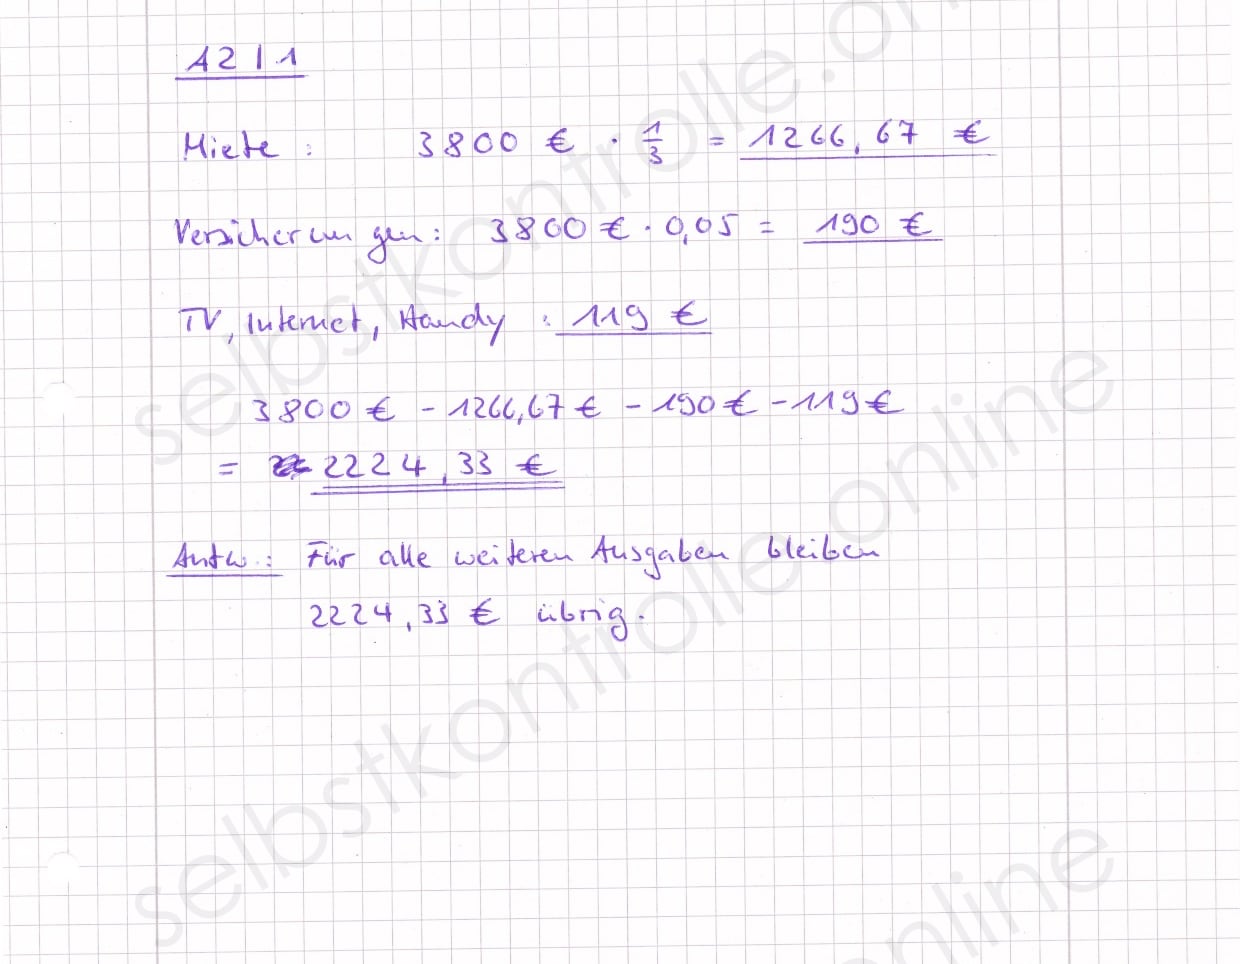 A2 | 1
Miete : 3800 € · 1/3 = 1266,67 €
Versicherungen: 3800 € · 0,05 = 190 €
TV, Internet, Handy : 119 €
3800 € - 1266,67 € - 190 € - 119 €
= 2224,33 €
Antw.: Für alle weiteren Ausgaben bleiben
2224,33 € übrig.
selbstkontrolle.online
selbstkontrolle.online
online